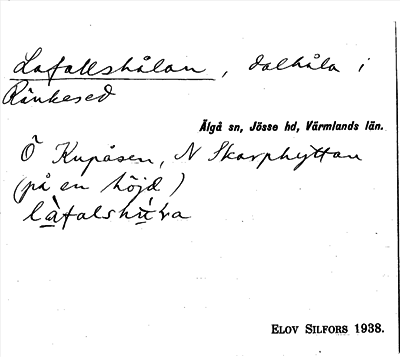 Lafallshålan, dalhåla i
Ränkesed
Älgå sn, Jösse hd, Värmlands län.
Ö Kupåsen, N Skarphyttan
(på en höjd)
Elov Silfors 1938.